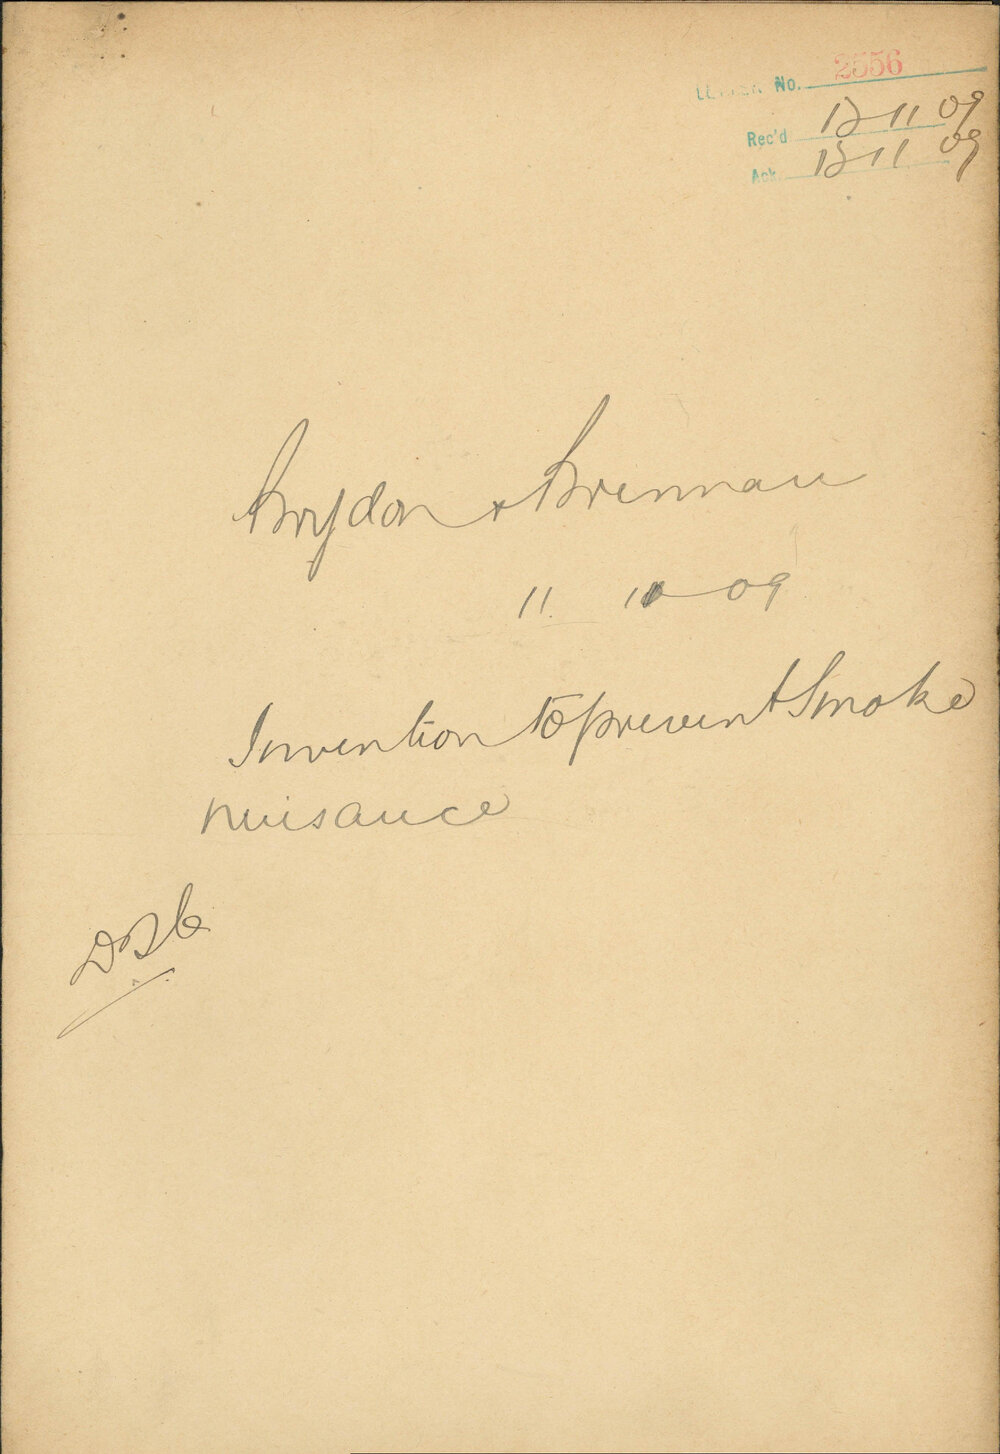 LETTER No. 2556
Rec'd 13 11 09
Ack. 13 11 09
Brydon & Brennan
11 10 09
Invention to prevent Smoke
nuisance